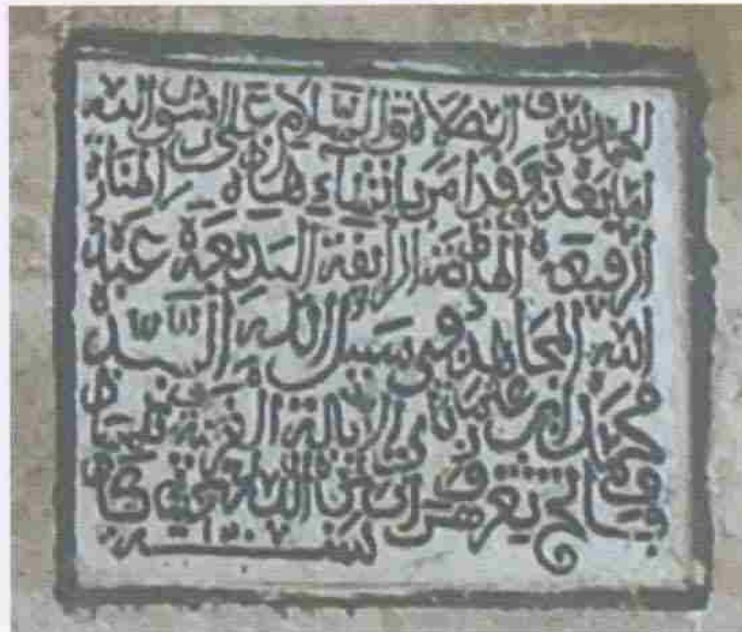 الحمد لله و الصلاة و السلام على رسول الله
وبعد فقد امر بانشاء هذه المنارة
الرفيعة الرايقة البديعة عبد
الله المجاهد في سبيل الله السيد
محمد ابن عثمان باي الايالة الغربية
وفاتح ثغر وهران
سنة ١٢٠٧